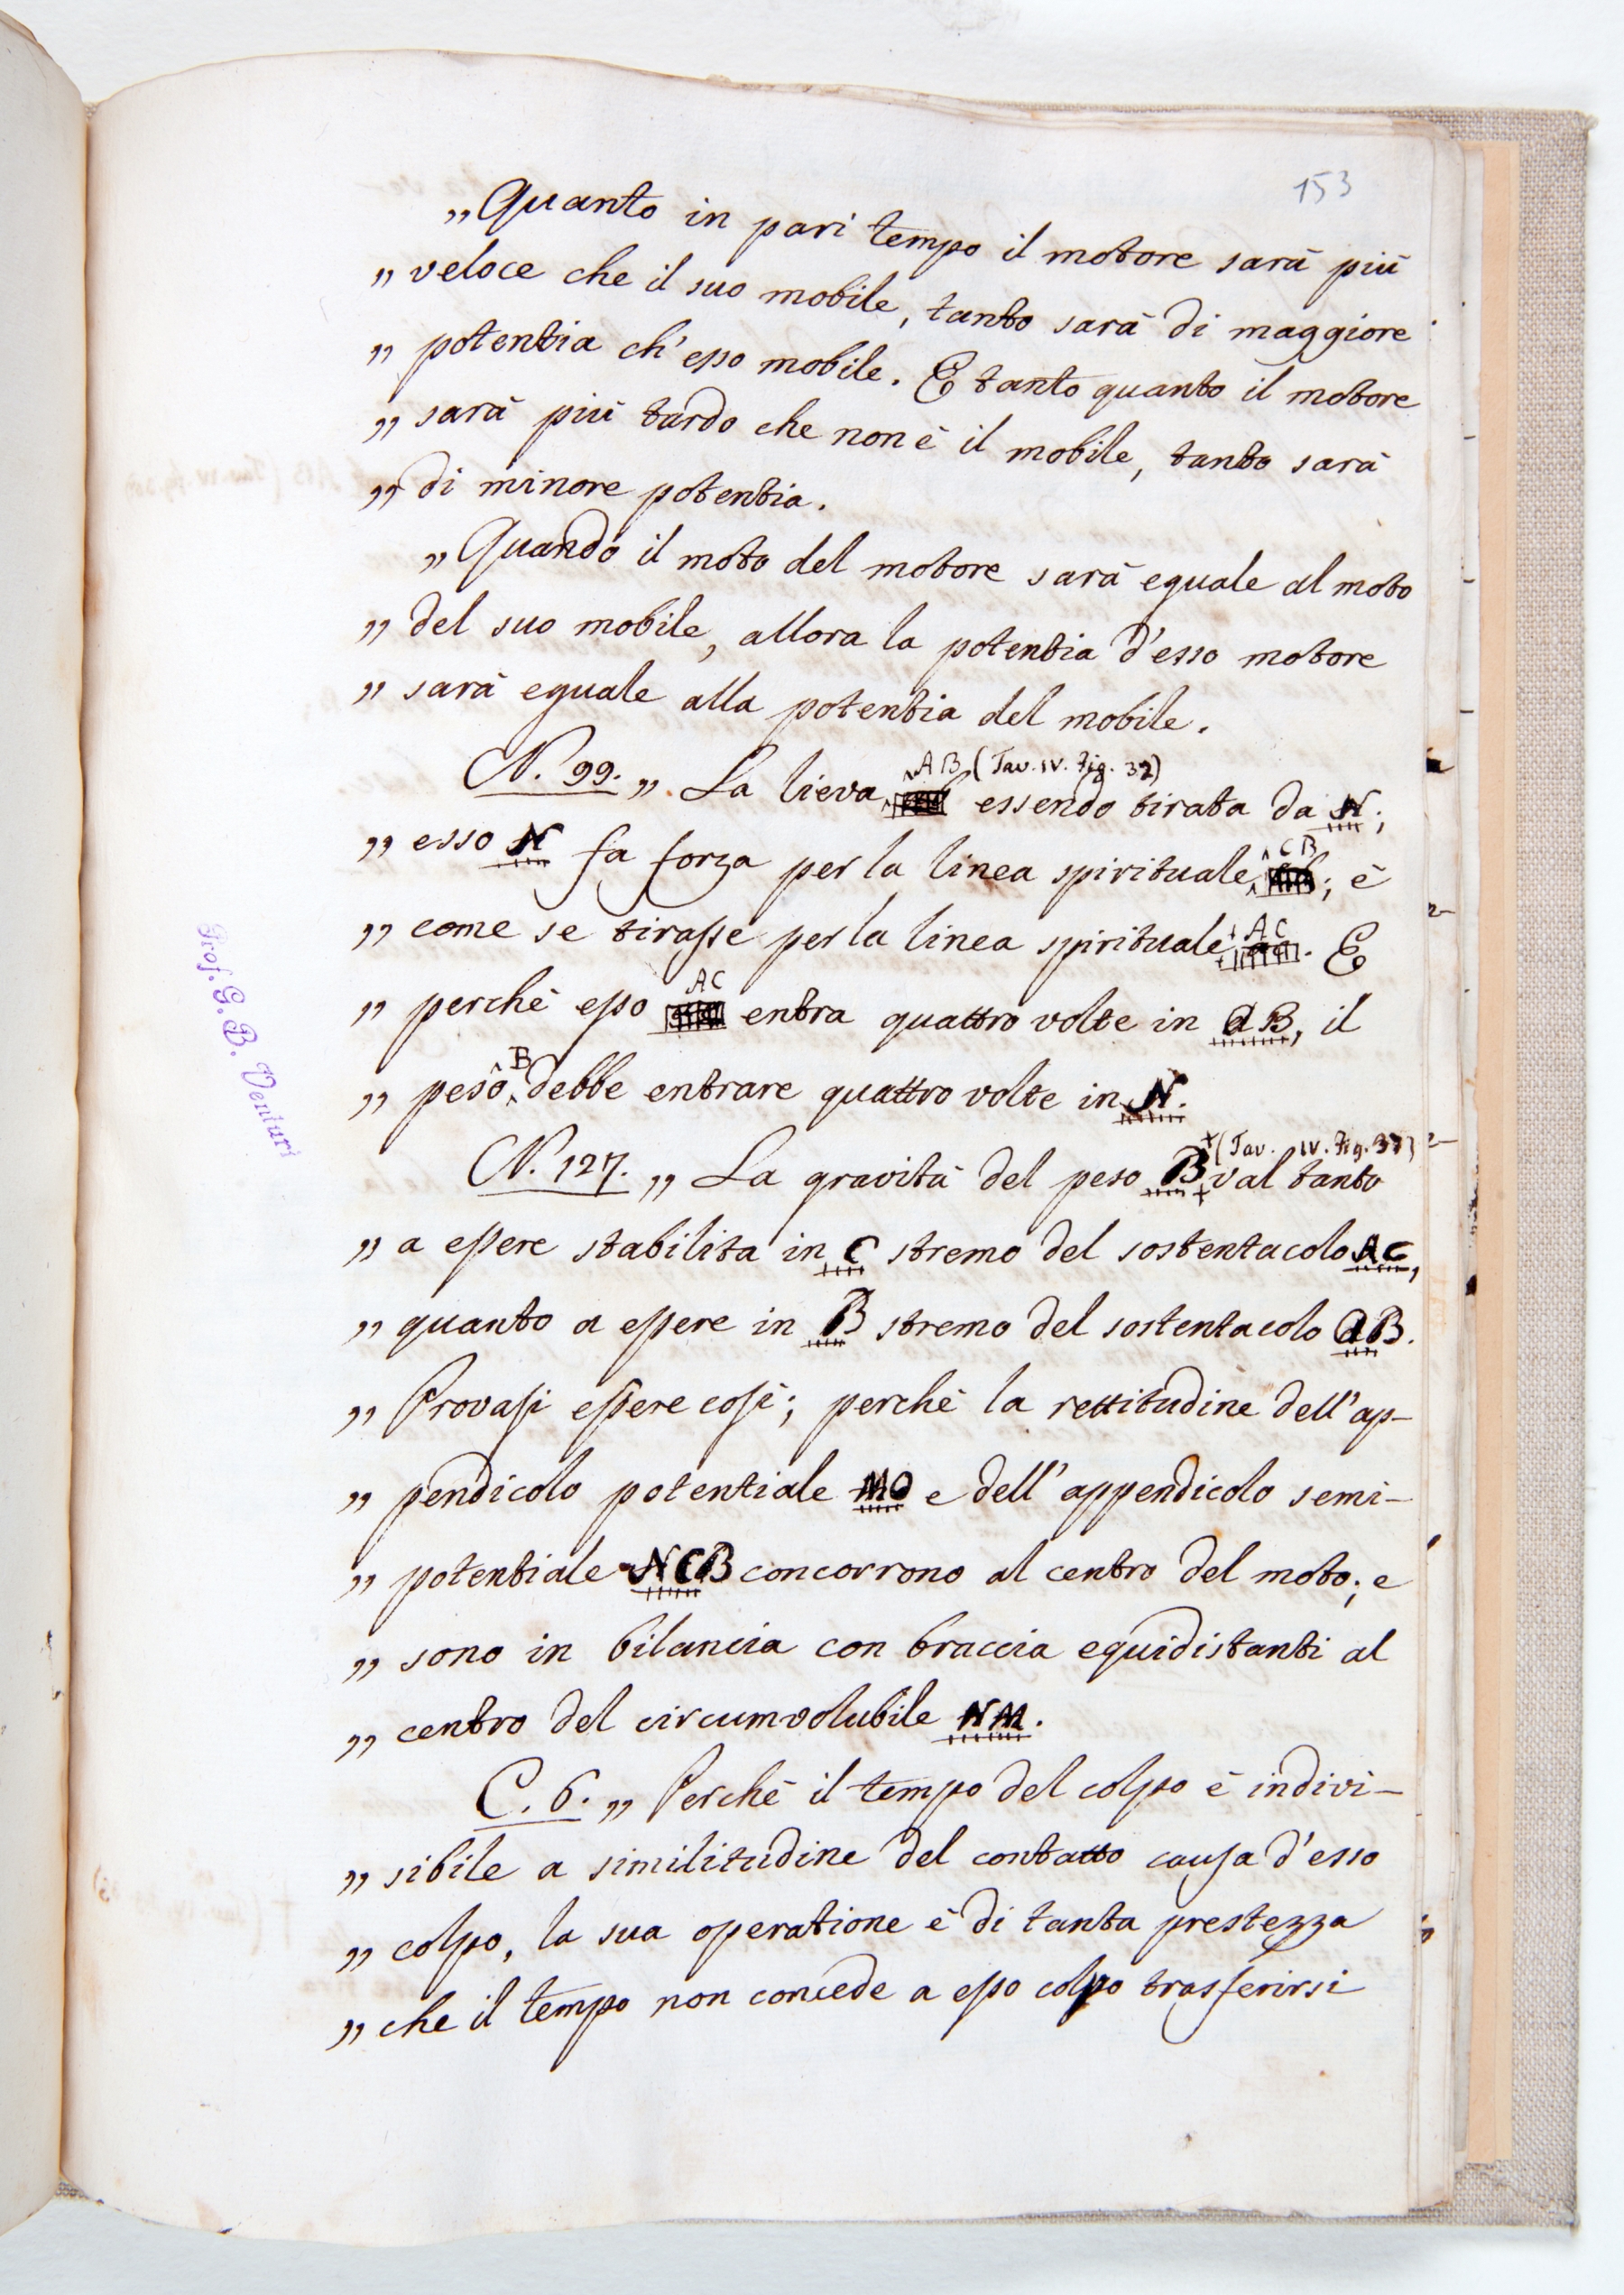 153
„Quanto in pari tempo il motore sarà più
„ veloce che il suo mobile, tanto sarà di maggiore
„ potentia ch'esso mobile. E tanto quanto il motore
„ sarà più tardo che non è il mobile, tanto sarà
„ di minore potentia.
„Quando il moto del motore sarà eguale al moto
„ del suo mobile, allora la potentia d'esso motore
„ sarà eguale alla potentia del mobile.
AB (Tav. IV. Fig. 32)
N. 99. „ La lieva essendo tirata da N;
CB
„ esso N fa forza per la linea spirituale ; è
„ come se tirasse per la linea spirituale AC. E
AC
„ perchè esso entra quattro volte in AB, il
B
„ peso debbe entrare quattro volte in N.
(Tav. IV. Fig.
N. 127. „ La gravità del peso B val tanto
„ a essere stabilita in C stremo del sostentacolo AC,
„ quanto a essere in B stremo del sostentacolo AB.
„ Provasi essere così; perchè la rettitudine dell'ap-
„ pendicolo potentiale MO e dell'appendicolo semi-
„ potentiale NCB concorrono al centro del moto; e
„ sono in bilancia con braccia equidistanti al
„ centro del circumvolubile NM.
C. 6. „ Perchè il tempo del colpo è indivi-
„ sibile a similitudine del contatto causa d'esso
„ colpo, la sua operatione è di tanta prestezza
„ che il tempo non concede a esso colpo trasferirsi
Prof. G. B. Venturi